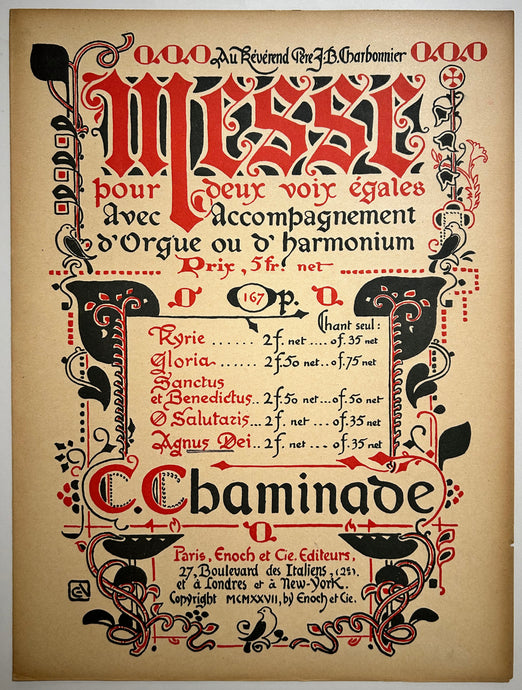 Au Révérend Père J-B. Charbonnier
Messe
pour deux voix égales
Avec Accompagnement
d'Orgue ou d'harmonium
Prix, 5 fr. net
Op. 167
Chant seul:
Kyrie ...... 2f. net .... 0f.35 net
Gloria ...... 2f.50 net ... 0f.75 net
Sanctus
et Benedictus .. 2f.50 net ... 0f.50 net
O Salutaris ... 2f. net ... 0f.35 net
Agnus Dei .. 2f. net ... 0f.35 net
C. Chaminade
Paris, Enoch et Cie. Editeurs,
27, Boulevard des Italiens, (2e).
et à Londres et à New-York.
Copyright MCMXXVII, by Enoch et Cie.